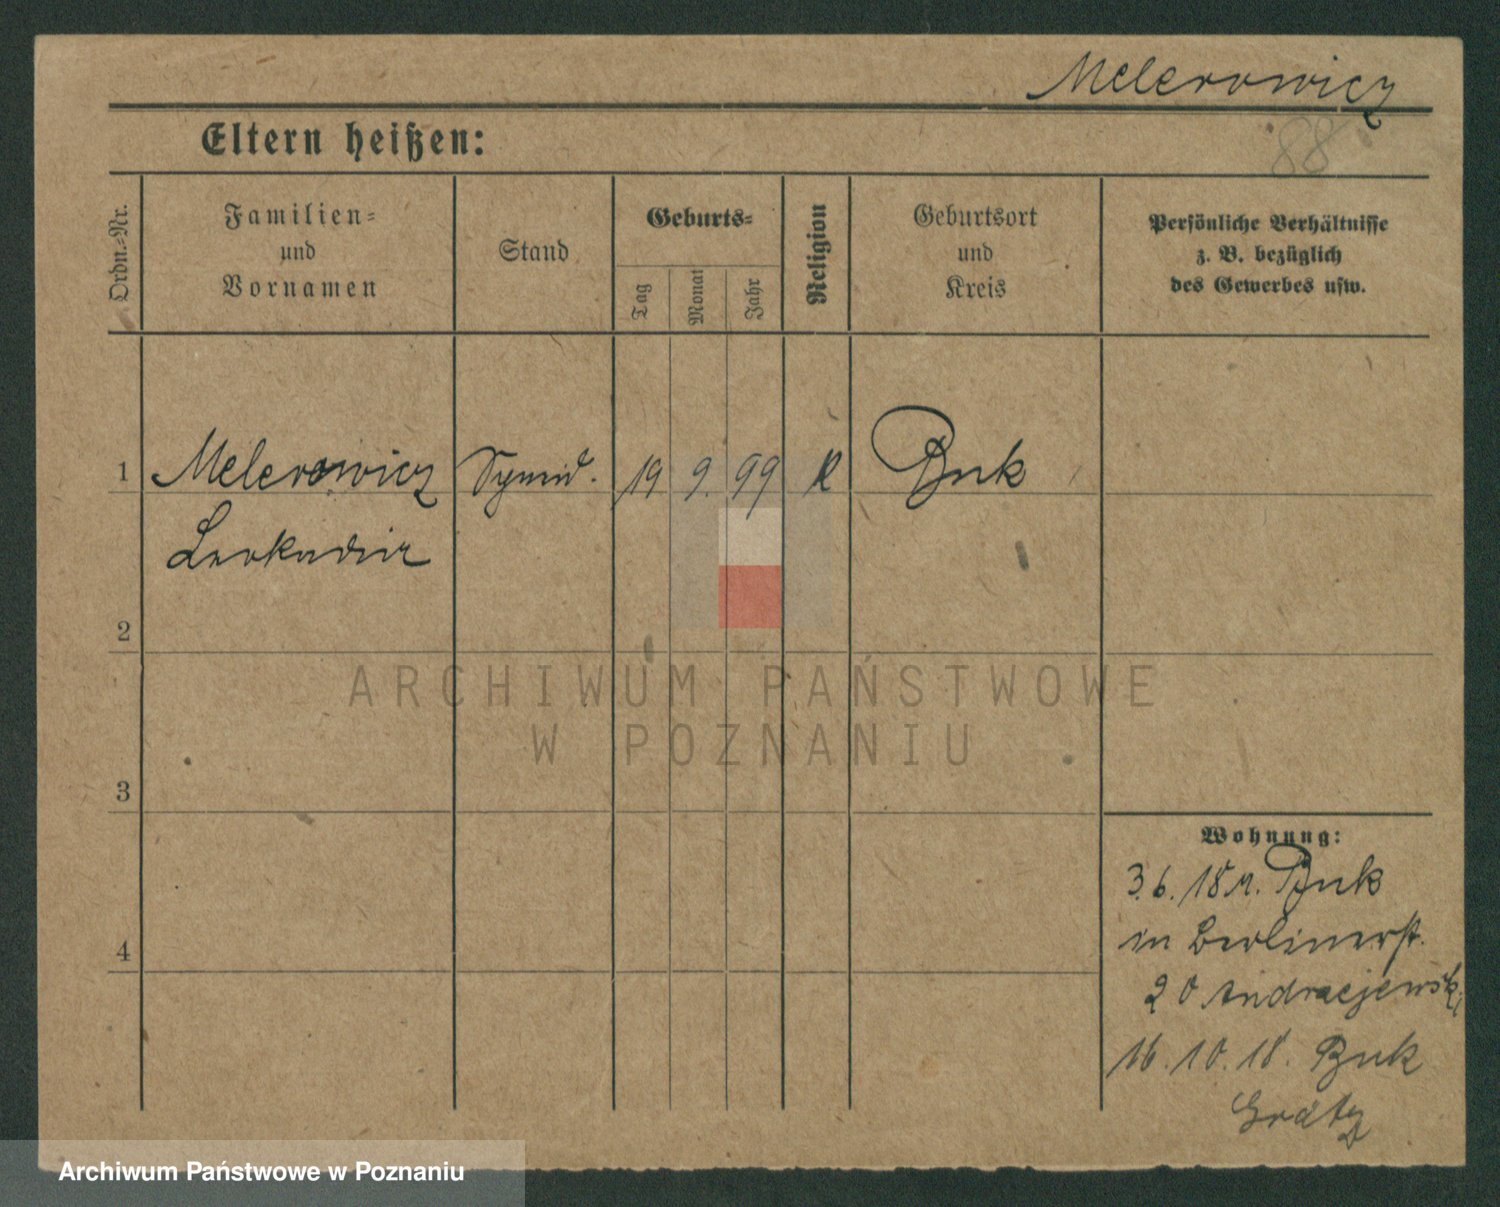 Melerowicz
88
Eltern heißen:
Ordn.-Nr.
Familien-
und
Vornamen
Stand
Geburts-
Tag
Monat
Jahr
Religion
Geburtsort
und
Kreis
Persönliche Verhältnisse
z. B. bezüglich
des Gewerbes usw.
1 Melerowicz 19 9. 99 K Buk
Leokadia
2
3
4
Wohnung:
3.6.18 v. Buk
in Berlinerst.
20 Andraejewski
16.10.18. Buk
Grätz
ARCHIWUM PAŃSTWOWE
W POZNANIU
Archiwum Państwowe w Poznaniu